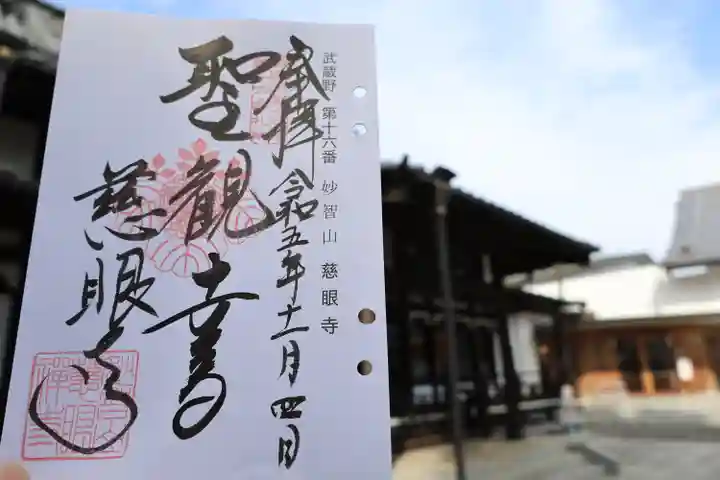 武蔵野 第十六番 妙智山 慈眼寺
奉拝 令和五年十二月四日
聖観世音
慈眼寺